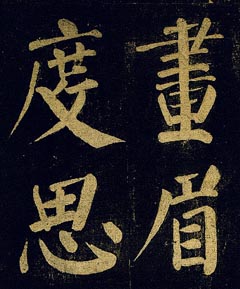 畫眉
度思